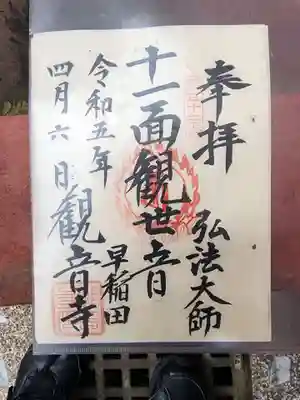 奉拝
弘法大師
十一面観世音
早稲田
令和五年
四月六日
観音寺